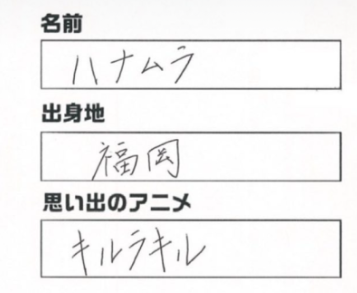 名前
ハナムラ
出身地
福岡
思い出のアニメ
キルラキル